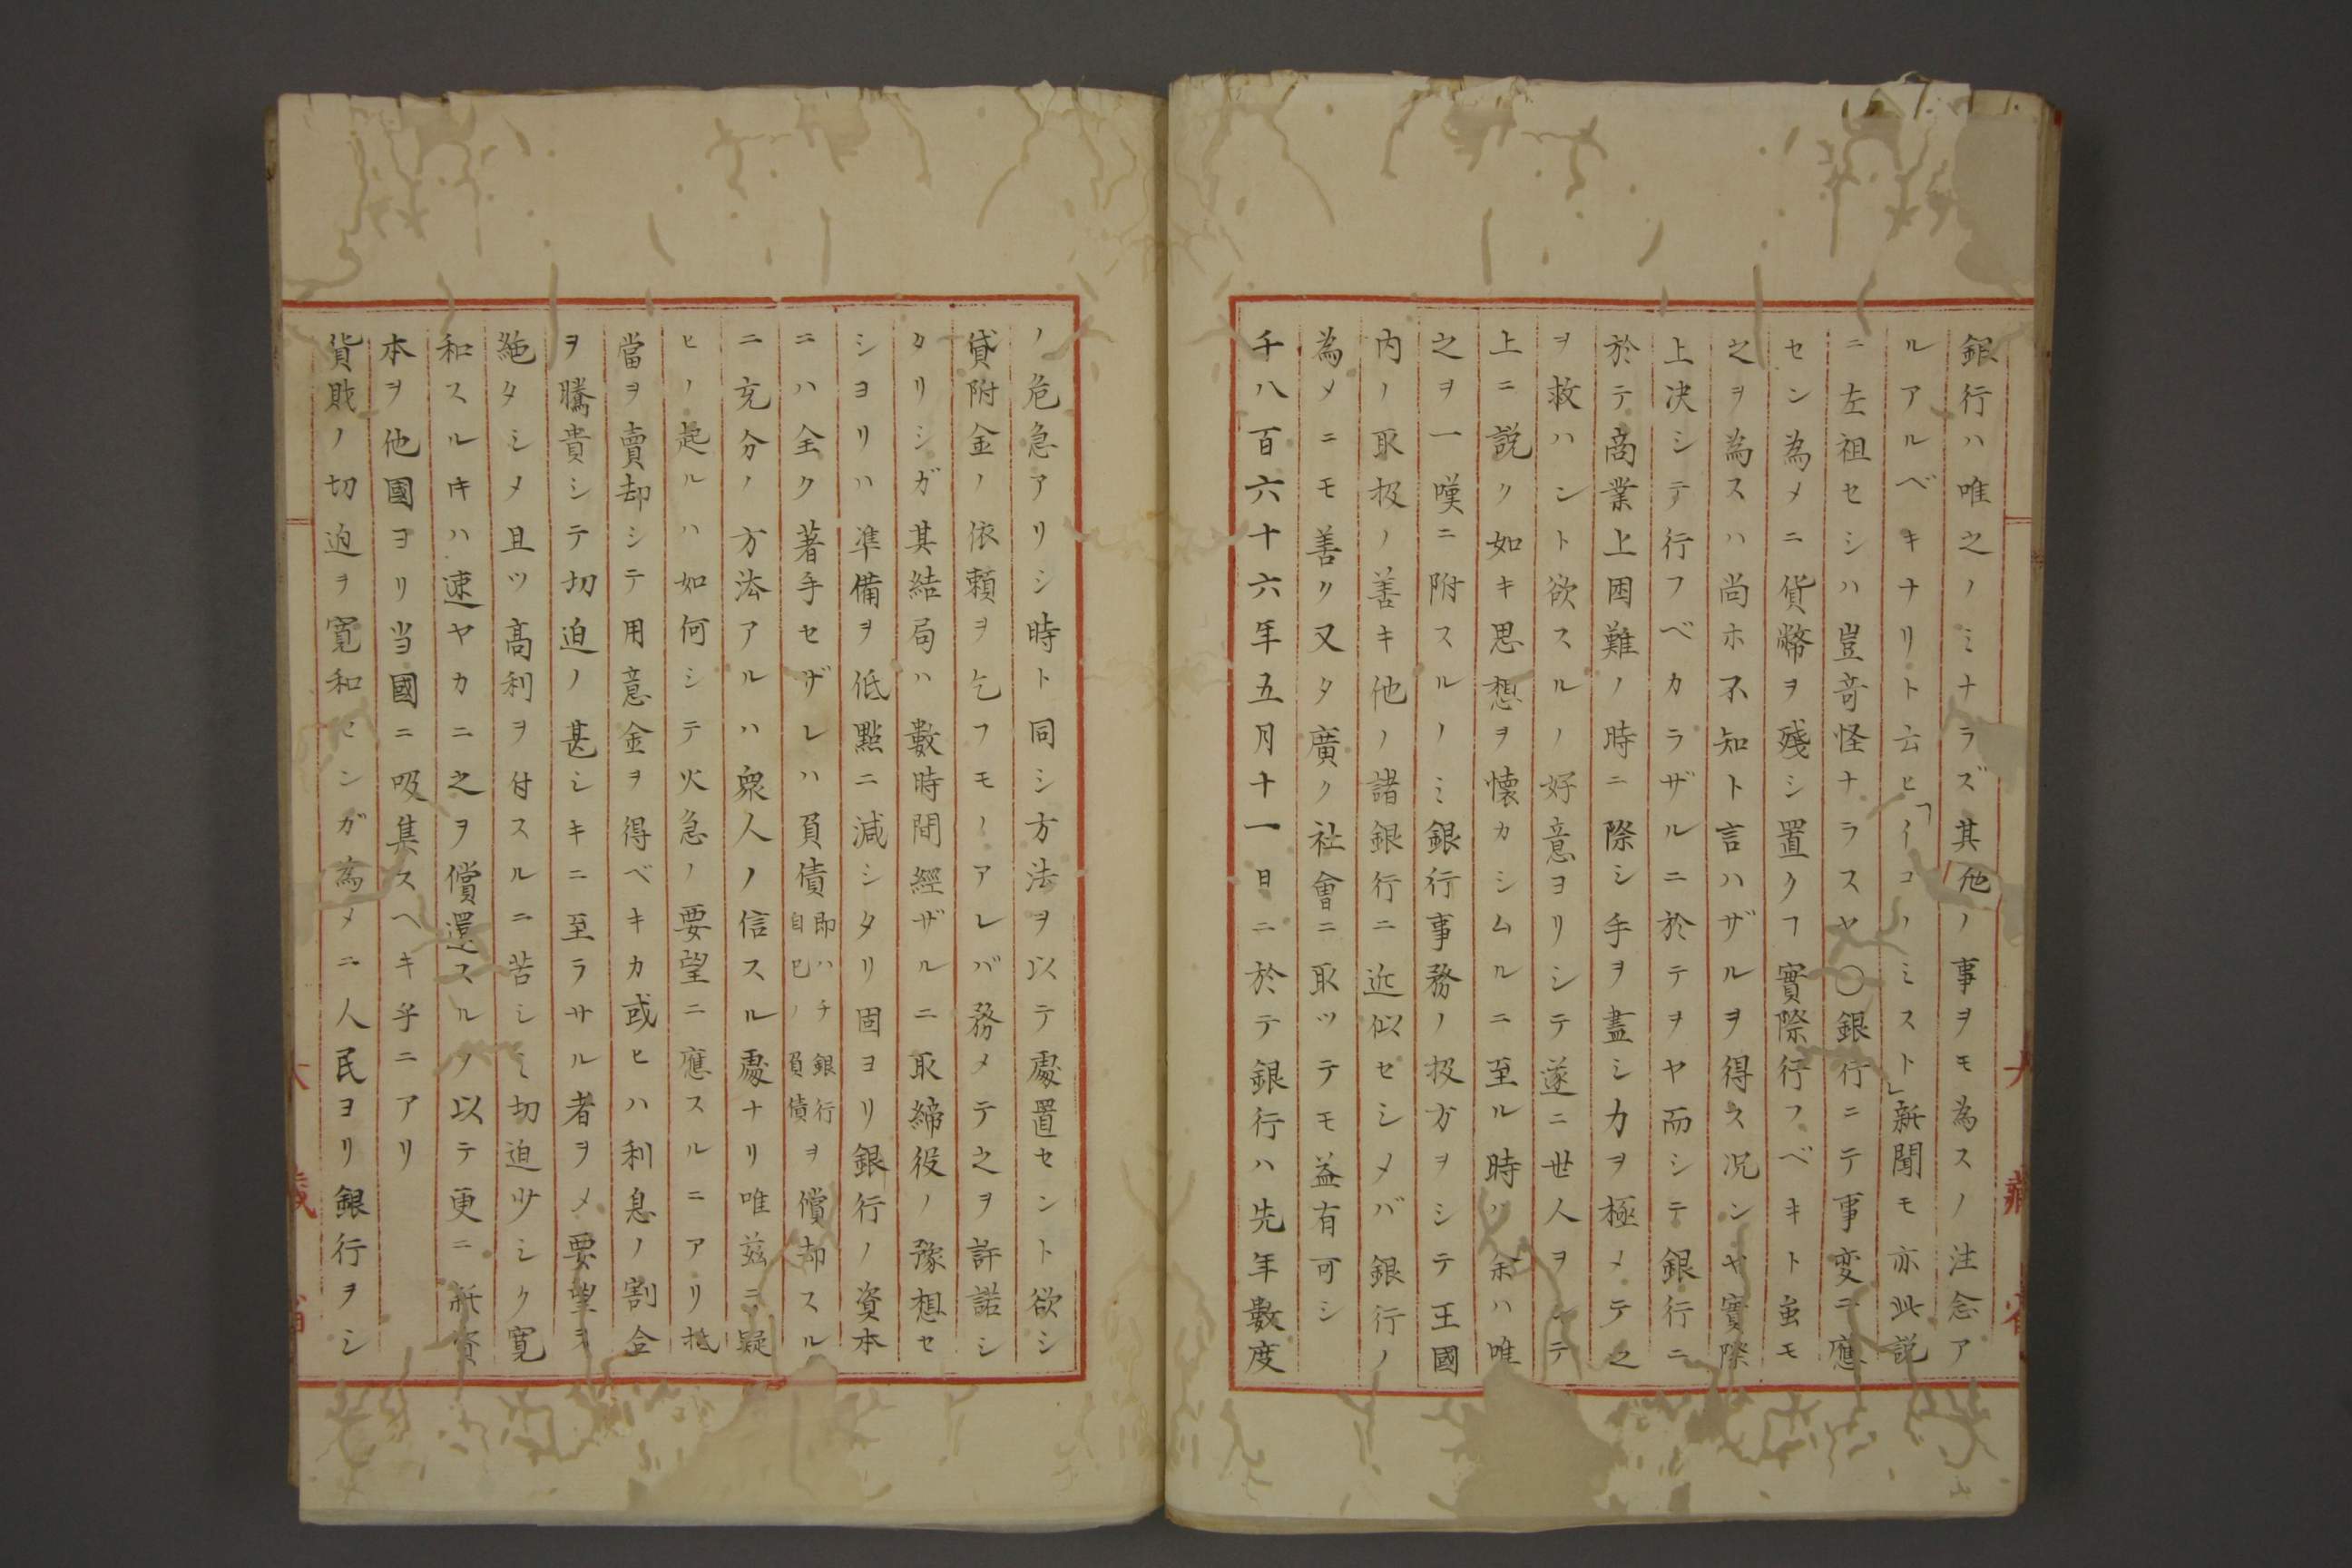 銀行ハ唯之ノミナラズ其他ノ事ヲモ為スノ注念ア
ルアルベキナリト云ヒ「イコノミスト」新聞モ亦此説
ニ左祖セシハ豈竒怪ナラスヤ〇銀行ニテ事変ニ應
セン為メニ貨幣ヲ殘シ置クヿ實際行フベキト虽モ
之ヲ為スハ尚ホ不知ト言ハザルヲ得ス况ンヤ實際
上决シテ行フベカラザルニ於テヲヤ而シテ銀行ニ
於テ商業上困難ノ時ニ際シ手ヲ盡シ力ヲ極メテ之
ヲ救ハント欲スルノ好意ヨリシテ遂ニ世人ヲシテ
上ニ説ク如キ思想ヲ懐カシムルニ至ル時ハ余ハ唯
之ヲ一嘆ニ附スルノミ銀行事務ノ扱方ヲシテ王國
内ノ取扱ノ善キ他ノ諸銀行ニ近似セシメバ銀行ノ
為メニモ善ク又タ廣ク社會ニ取ツテモ益有可シ
千八百六十六年五月十一日ニ於テ銀行ハ先年數度
ノ危急アリシ時ト同シ方法ヲ以テ處置セント欲シ
貸附金ノ依頼ヲ乞フモノアレバ務メテ之ヲ許諾シ
タリシガ其結局ハ數時間經ザルニ取締役ノ豫想セ
シヨリハ凖備ヲ低點ニ減シタリ固ヨリ銀行ノ資本
ニハ全ク著手セザレハ負債即ハチ銀行自己ノ負債ヲ償却スル
ニ充分ノ方法アルハ衆人ノ信スル處ナリ唯兹ニ疑
ヒノ起ルハ如何シテ火急ノ要望ニ應スルニアリ抵
當ヲ賣却シテ用意金ヲ得ベキカ或ヒハ利息ノ割合
ヲ騰貴シテ切迫ノ甚シキニ至ラサル者ヲメ要望ヲ
絶タシメ且ツ高利ヲ付スルニ苦シミ切迫少シク寛
和スルキハ速ヤカニ之ヲ償還スルノ以テ更ニ 資
本ヲ他國ヨリ当國ニ吸集スヘキ乎ニアリ
貨戝ノ切迫ヲ寛和センガ為メニ人民ヨリ銀行ヲシ